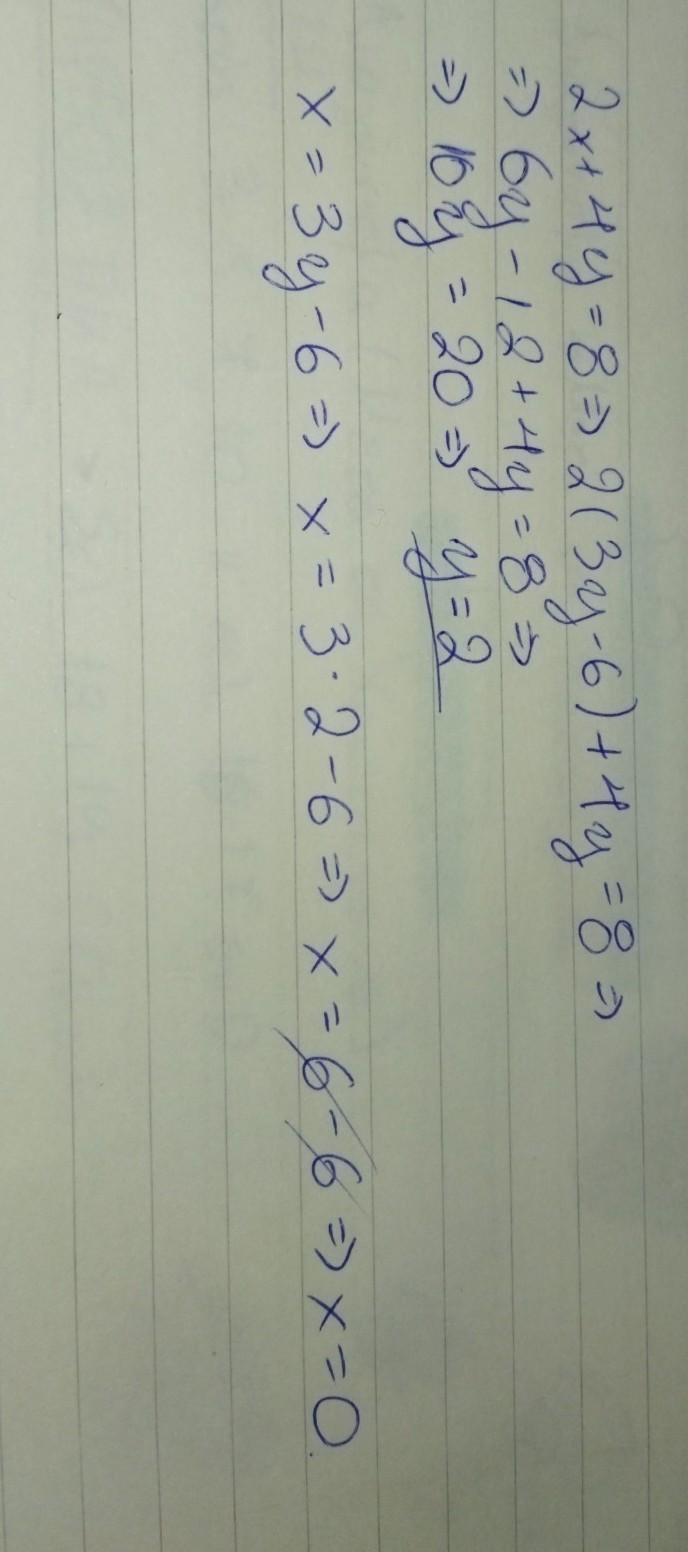 2x+4y=8 ⇒ 2(3y-6)+4y=8 ⇒
⇒ 6y-12+4y=8 ⇒
⇒ 10y=20 ⇒ y=2
x=3y-6 ⇒ x=3·2-6 ⇒ x=6-6 ⇒ x=0.